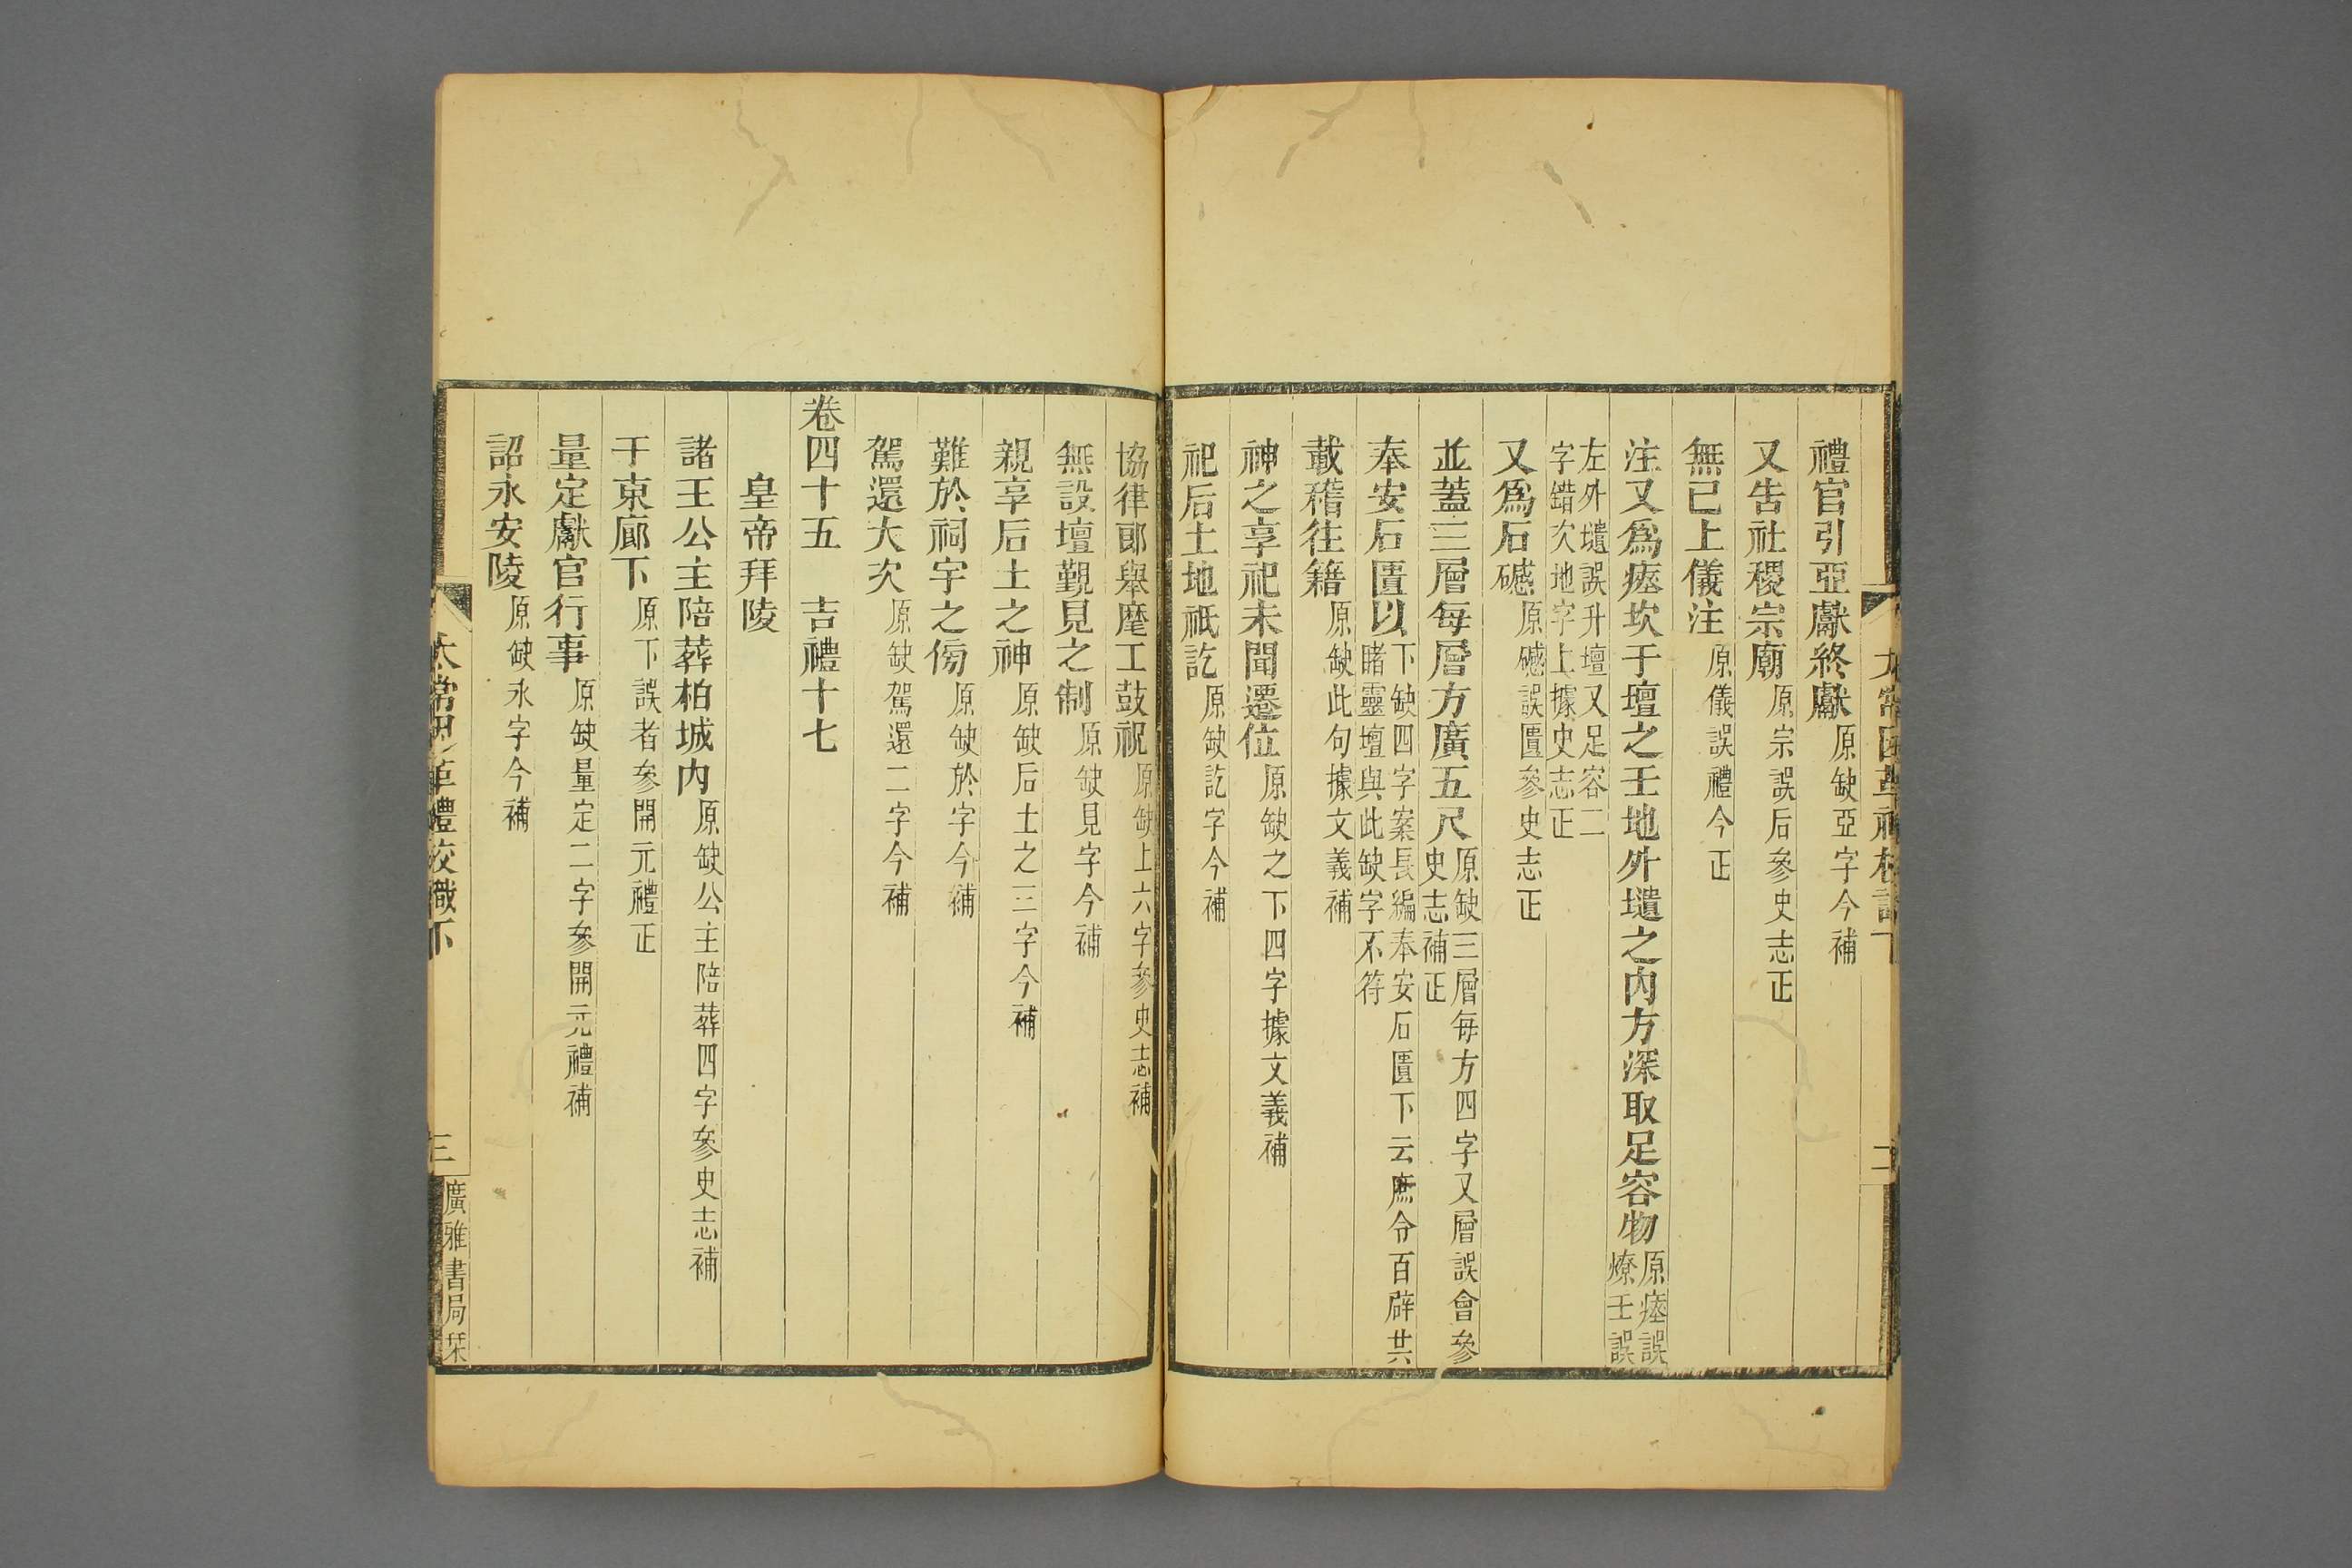 禮官引亞獻終獻原缺亞字今補
又吿社稷宗廟原宗誤后參史志正
無已上儀注原儀誤禮今正
注又爲瘞坎于壇之壬地外壝之內方深取足容物原瘞誤燎壬誤
左外壝誤升壇又足容二字錯次地字上據史志正
又爲石䃭原䃭誤匱參史志正
並蓋三層每層方廣五尺原缺三層每方四字又層誤會參史志補正
奉安石匱以下缺四字案長編奉安石匱下云庶令百辟共睹靈壇與此缺字不符
載稽往籍原缺此句據文義補
神之享祀未聞遷位原缺之下四字據文義補
祀后土地祇訖原缺訖字今補
協律郞舉麾工鼓祝原缺上六字參史志補
無設壇覲見之制原缺見字今補
親享后土之神原缺后土之三字今補
難於祠宇之傍原缺於字今補
駕還大次原缺駕還二字今補
卷四十五 吉禮十七
皇帝拜陵
諸王公主陪葬柏城內原缺公主陪葬四字參史志補
于東廊下原下誤者參開元禮正
量定獻官行事原缺量定二字參開元禮補
詔永安陵原缺永字今補
太常因革禮校識下
三
廣雅書局栞